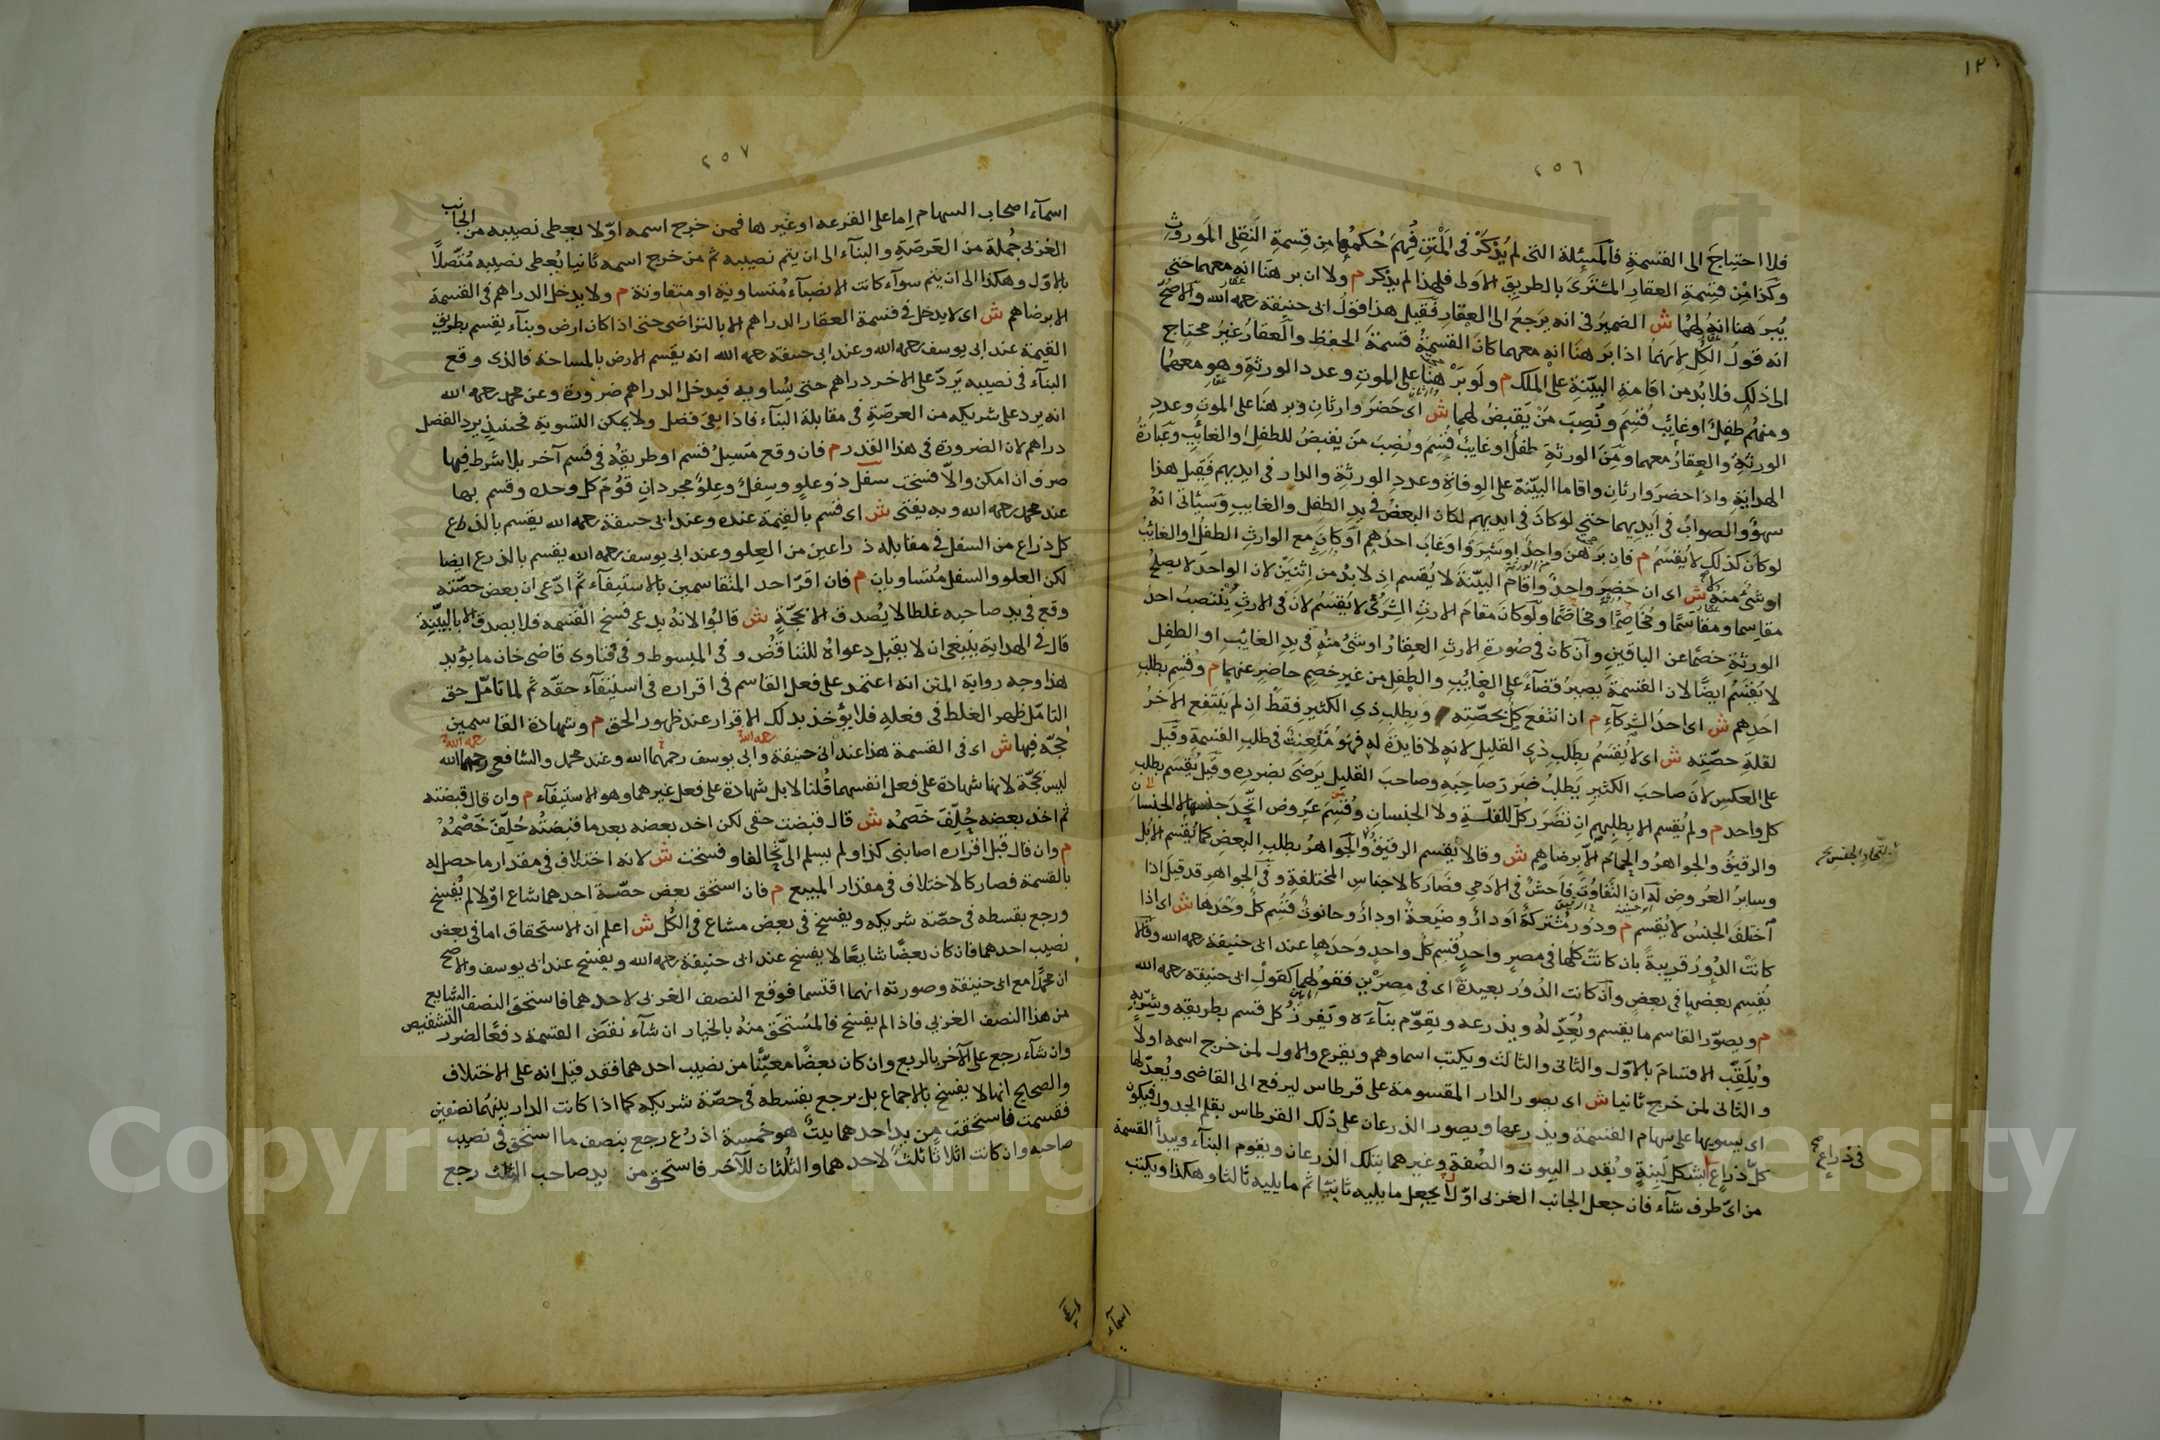 ١٢٠
٢٥٦
فلا احتياج الى القسمة فالمسئلة التى لم يذكر فى المتن فهم حكمها من قسمة النقلى الموروث
وكذا من قسمة العقار المشترى بالطريق الاولى فلهذا لم يذكر م ولا ان برهنا انه معهما حتى
يبرهنا انه لهما ش الضمير فى انه يرجع الى العقار فقيل هذا قول ابى حنيفة رحمه الله والاصح
انه قول الكل لانهما اذا برهنا انه معهما كان القسمة قسمة الحفظ والعقار غير محتاج
الى ذلك فلا بد من اقامة البينة على الملك م ولو برهنا على الموت وعدد الورثة وهو معهما
ومنهم طفل او غائب قسم ونصب من يقبض لهما ش اى حضر وارثان وبرهنا على الموت وعدد
الورثة والعقار معهما ومن الورثة طفل او غايب قسم ونصب من يقبض للطفل والغائب وعبارة
الهداية واذا حضر وارثان واقاما البينة على الوفاة وعدد الورثة والدار فى ايديهم فقيل هذا
سهو والصواب فى ايديهما حتى لو كان فى ايديهم لكان البعض فى يد الطفل والغايب وسيأتى انه
لو كان كذلك لا يقسم م فان برهن واحد او شروا وغاب احدهم او كان مع الوارث الطفل او الغائب
او شئ منه ش اى ان حضر واحد واقام البينة لا يقسم اذ لا بد من اثنين لان الواحد لا يصلح
مقاسما ومقاسما ومخاصما ومخاصما ولو كان مقام الارث الشرى لا يقسم لان فى الارث ينتصب احد
الورثة خصما عن الباقين وان كان فى صورة الارث العقار او شئ منه فى يد الغائب او الطفل
لا يقسم ايضا لان القسمة يصير قضاء على الغائب والطفل من غير خصم حاضر عنهما م وقسم بطلب
احدهم ش اى احد الشركاء م ان انتفع كل بحصته وبطلب ذى الكثير فقط ان لم ينتفع الآخر
لقلة حصته ش اى لا يقسم بطلب ذى القليل لانه لا فايدة له فهو متعنت فى طلب القسمة وقيل
على العكس لان صاحب الكثير يطلب ضرر صاحبه وصاحب القليل يرضى بضرره وقيل يقسم بطلب
كل واحد م ولم يقسم الا بطلبهم ان تضرر كل للقلة ولا الجنسان وقسم عروض اتحد جنسها لا الجنسان
والرقيق والجواهر والحمام الا برضاهم ش وقالا يقسم الرقيق والجواهر بطلب البعض كما يقسم الابل
وساير العروض له ان التفاوت فاحش فى الآدمى فصار كالاجناس المختلفة وفى الجواهر قد قيل اذا
اختلف الجنس لا يقسم م ودور مشتركة او دار وضيعة او دار وحانوت قسم كل وحدها ش اى اذا
كانت الدور قريبة بان كانت كلها فى مصر واحد قسم كل واحد وحدها عند ابى حنيفة رحمه الله وقالا
يقسم بعضها فى بعض وان كانت الدور بعيدة اى فى مصرين فقولهما كقول ابى حنيفة رحمه الله
م ويصور القاسم ما يقسم ويعدله ويذرعه ويقوم بناءه ويفرز كل قسم بطريقه وشربه
ويلقب الاقسام بالاول والثانى والثالث ويكتب اسماوهم ويقرع والاول لمن خرج اسمه اولا
والثانى لمن خرج ثانيا ش اى يصور الدار المقسومة على قرطاس ليرفع الى القاضى ويعدلها
اى يسويها على سهام القسمة ويذرعها ويصور الذرعان على ذلك القرطاس بقلم الجدول فيكون
كل ذراع بشكل لبنة ويقدر البيوت والصفة وغيرهما بتلك الذرعان ويقوم البناء ويبدأ القسمة
من اى طرف شاء فان جعل الجانب الغربى اولا يجعل ما يليه ثانيا ثم ما يليه ثالثا وهكذا ويكتب
اسماء
فى ذراع صح
٢٥٧
اسماء اصحاب السهام اما على القرعة او غيرها فمن خرج اسمه اولا يعطى نصيبه من الجانب
الغربى جملة من العرصة والبناء الى ان يتم نصيبه ثم من خرج اسمه ثانيا يعطى نصيبه متصلا
بالاول وهكذا الى ان يتم سواء كانت الانصباء متساوية او متفاوتة م ولا يدخل الدراهم فى القسمة
الا برضاهم ش اى لا يدخل فى قسمة العقار الدراهم الا بالتراضى حتى اذا كان ارض وبناء يقسم بطريق
القيمة عند ابى يوسف رحمه الله وعند ابى حنيفة رحمه الله انه يقسم الارض بالمساحة فالذى وقع
البناء فى نصيبه يرد على الاخر دراهم حتى يساويه فيدخل الدراهم ضرورة وعن محمد رحمه الله
انه يرد على شريكه من العرصة فى مقابلة البناء فاذا بقى فضل ولا يمكن التسوية فحينئذ يرد الفضل
دراهم لان الضرورة فى هذا القدر م فان وقع مسيل قسم او طريقه فى قسم آخر بلا شرط فيها
صرف ان امكن والا فسخت سفل ذو علو وسفل وعلو مجردان قوم كل وحده وقسم بها
عند محمد رحمه الله وبه يفتى ش اى قسم بالقيمة عنده وعند ابى حنيفة رحمه الله يقسم بالذرع
كل ذراع من السفل فى مقابلة ذراعين من العلو وعند ابى يوسف رحمه الله يقسم بالذرع ايضا
لكن العلو والسفل متساويان م فان اقر احد المتقاسمين بالاستيفاء ثم ادعى ان بعض حصته
وقع فى يد صاحبه غلطا لا يصدق الا بحجة ش قالوا لانه يدعى فسخ القسمة فلا يصدق الا بالبينة
قال فى الهداية ينبغى ان لا يقبل دعواه للتناقض و فى المبسوط وفى فتاوى قاضى خان ما يؤيد
هذا وجه رواية المتن انه اعتمد على فعل القاسم فى اقراره فى استيفاء حقه ثم لما تأمل حق
التأمل ظهر الغلط فى فعله فلا يؤخذ بذلك الاقرار عند ظهور الحق م وشهادة القاسمين
حجة فيها ش اى فى القسمة هذا عند ابى حنيفة وابى يوسف رحمهما الله وعند محمد والشافعى رحمهما الله
ليس بحجة لانها شهادة على فعل انفسهما قلنا لا بل شهادة على فعل غيرهما وهو الاستيفاء م وان قال قبضته
ثم اخذ بعضه حلف خصمه ش قال قبضت حقى لكن اخذ بعضه بعد ما قبضته حلف خصمه
م وان قال قبل اقراره اصابنى كذا ولم يسلم الى تحالفا وفسخت ش لانه اختلاف فى مقدار ما حصل له
بالقسمة فصار كالاختلاف فى مقدار المبيع م فان استحق بعض حصة احدهما شاع اولا لم يفسخ
ورجع بقسطه فى حصة شريكه ويفسخ فى بعض مشاع فى الكل ش اعلم ان الاستحقاق اما فى بعض
نصيب احدهما فان كان بعضا شايعا لا يفسخ عند ابى حنيفة رحمه الله ويفسخ عند ابى يوسف والاصح
ان محمدا مع ابى حنيفة وصورته انهما اقتسما فوقع النصف الغربى لاحدهما فاستحق النصف الشايع
من هذا النصف الغربى فاذا لم يفسخ فالمستحق منه بالخيار ان شاء نقض القسمة دفعا لضرر التشقيص
وان شاء رجع على الآخر بالربع وان كان بعضا معينا من نصيب احدهما فقد قيل انه على الاختلاف
والصحيح انها لا يفسخ بالاجماع بل يرجع بقسطه فى حصة شريكه كما اذا كانت الدار بينهما نصفين
فقسمت فاستحقت من يد احدهما بيت هو خمسة اذرع رجع بنصف ما استحق فى نصيب
صاحبه وان كانت اثلاثا ثلث لاحدهما والثلثان للآخر فاستحق من يد صاحب الثلث رجع
Copyright © King Saud University